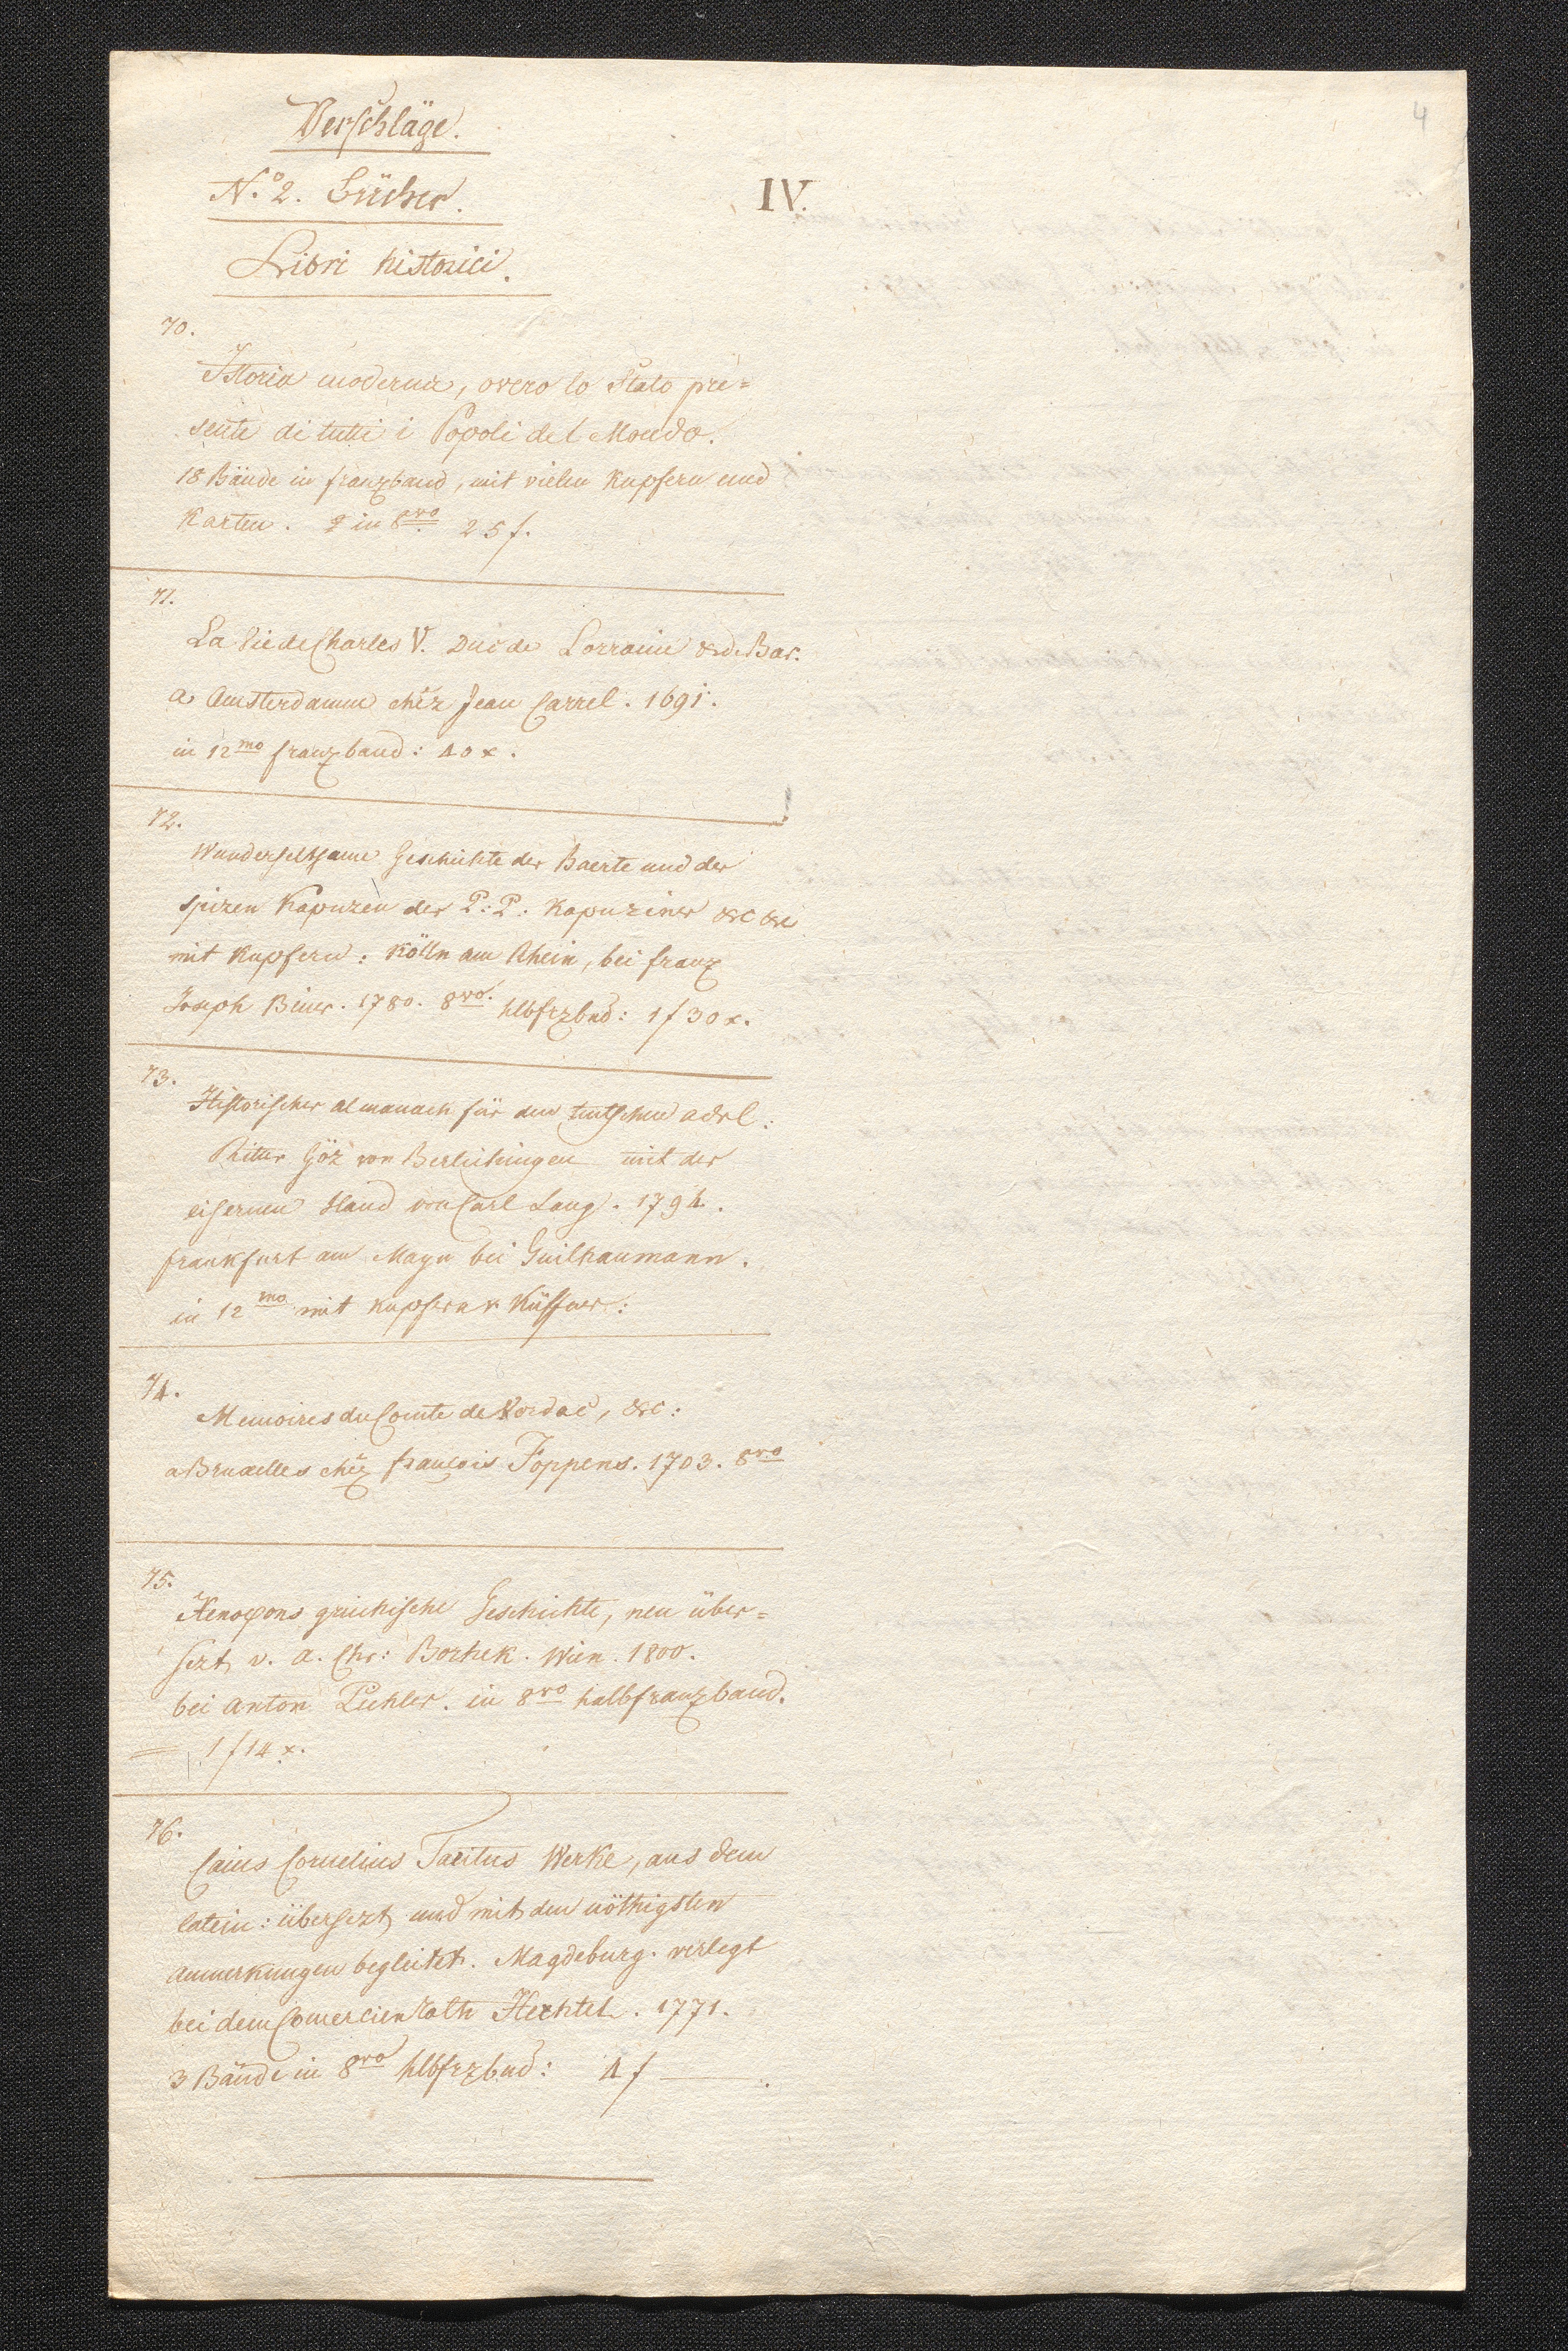 4
Verschläge.
N.º 2. Bücher.
IV.
Libri historici.
70.
Istoria moderna, overo lo Stato pre=
sente di tutti i Popoli del Mondo.
18 Bände in franzband, mit vielen Kupfern und
Karten. in 8vo 25 f.
71.
La Vie de Charles V. Duc de Lorraine & de Bar.
a Amsterdamm chéz Jean Garrel. 1691.
in 12mo franzband: 40 x.
72.
Wunderseltsame Geschichte der Baerte und der
spizen Kapuzen der P: P: Kapuziner &c &c
mit Kupfern: Kölln am Rhein, bei franz
Joseph Biner. 1780. 8vo. hlbfrzbnd: 1 f 30 x.
73.
Historischer almanach für den teutschen adel:
Ritter Göz von Berlichingen mit der
eisernen Hand von Carl Lang. 1794.
frankfurt am Mayn bei Guilhaumann.
in 12mo mit kupfern v. Küffner:
74.
Memoires du Comte de Vordac, &c:
a Bruxelles chéz françois Foppens. 1703. 8vo
75.
Xenofons griechische Geschichte, neu über=
sezt v. a. Chr: Borhek. Wien. 1800.
bei anton Pichler. in 8vo halbfranzband.
1 f 14 x.
76.
Caius Cornelius Tacitus Werke, aus dem
latein: übersezt und mit den nöthigsten
anmerkungen begleitet. Magdeburg. verlegt
bei dem Comercienrath Hechtel. 1771.
3 Bände in 8vo hlbfrzbnd: 4 f —.